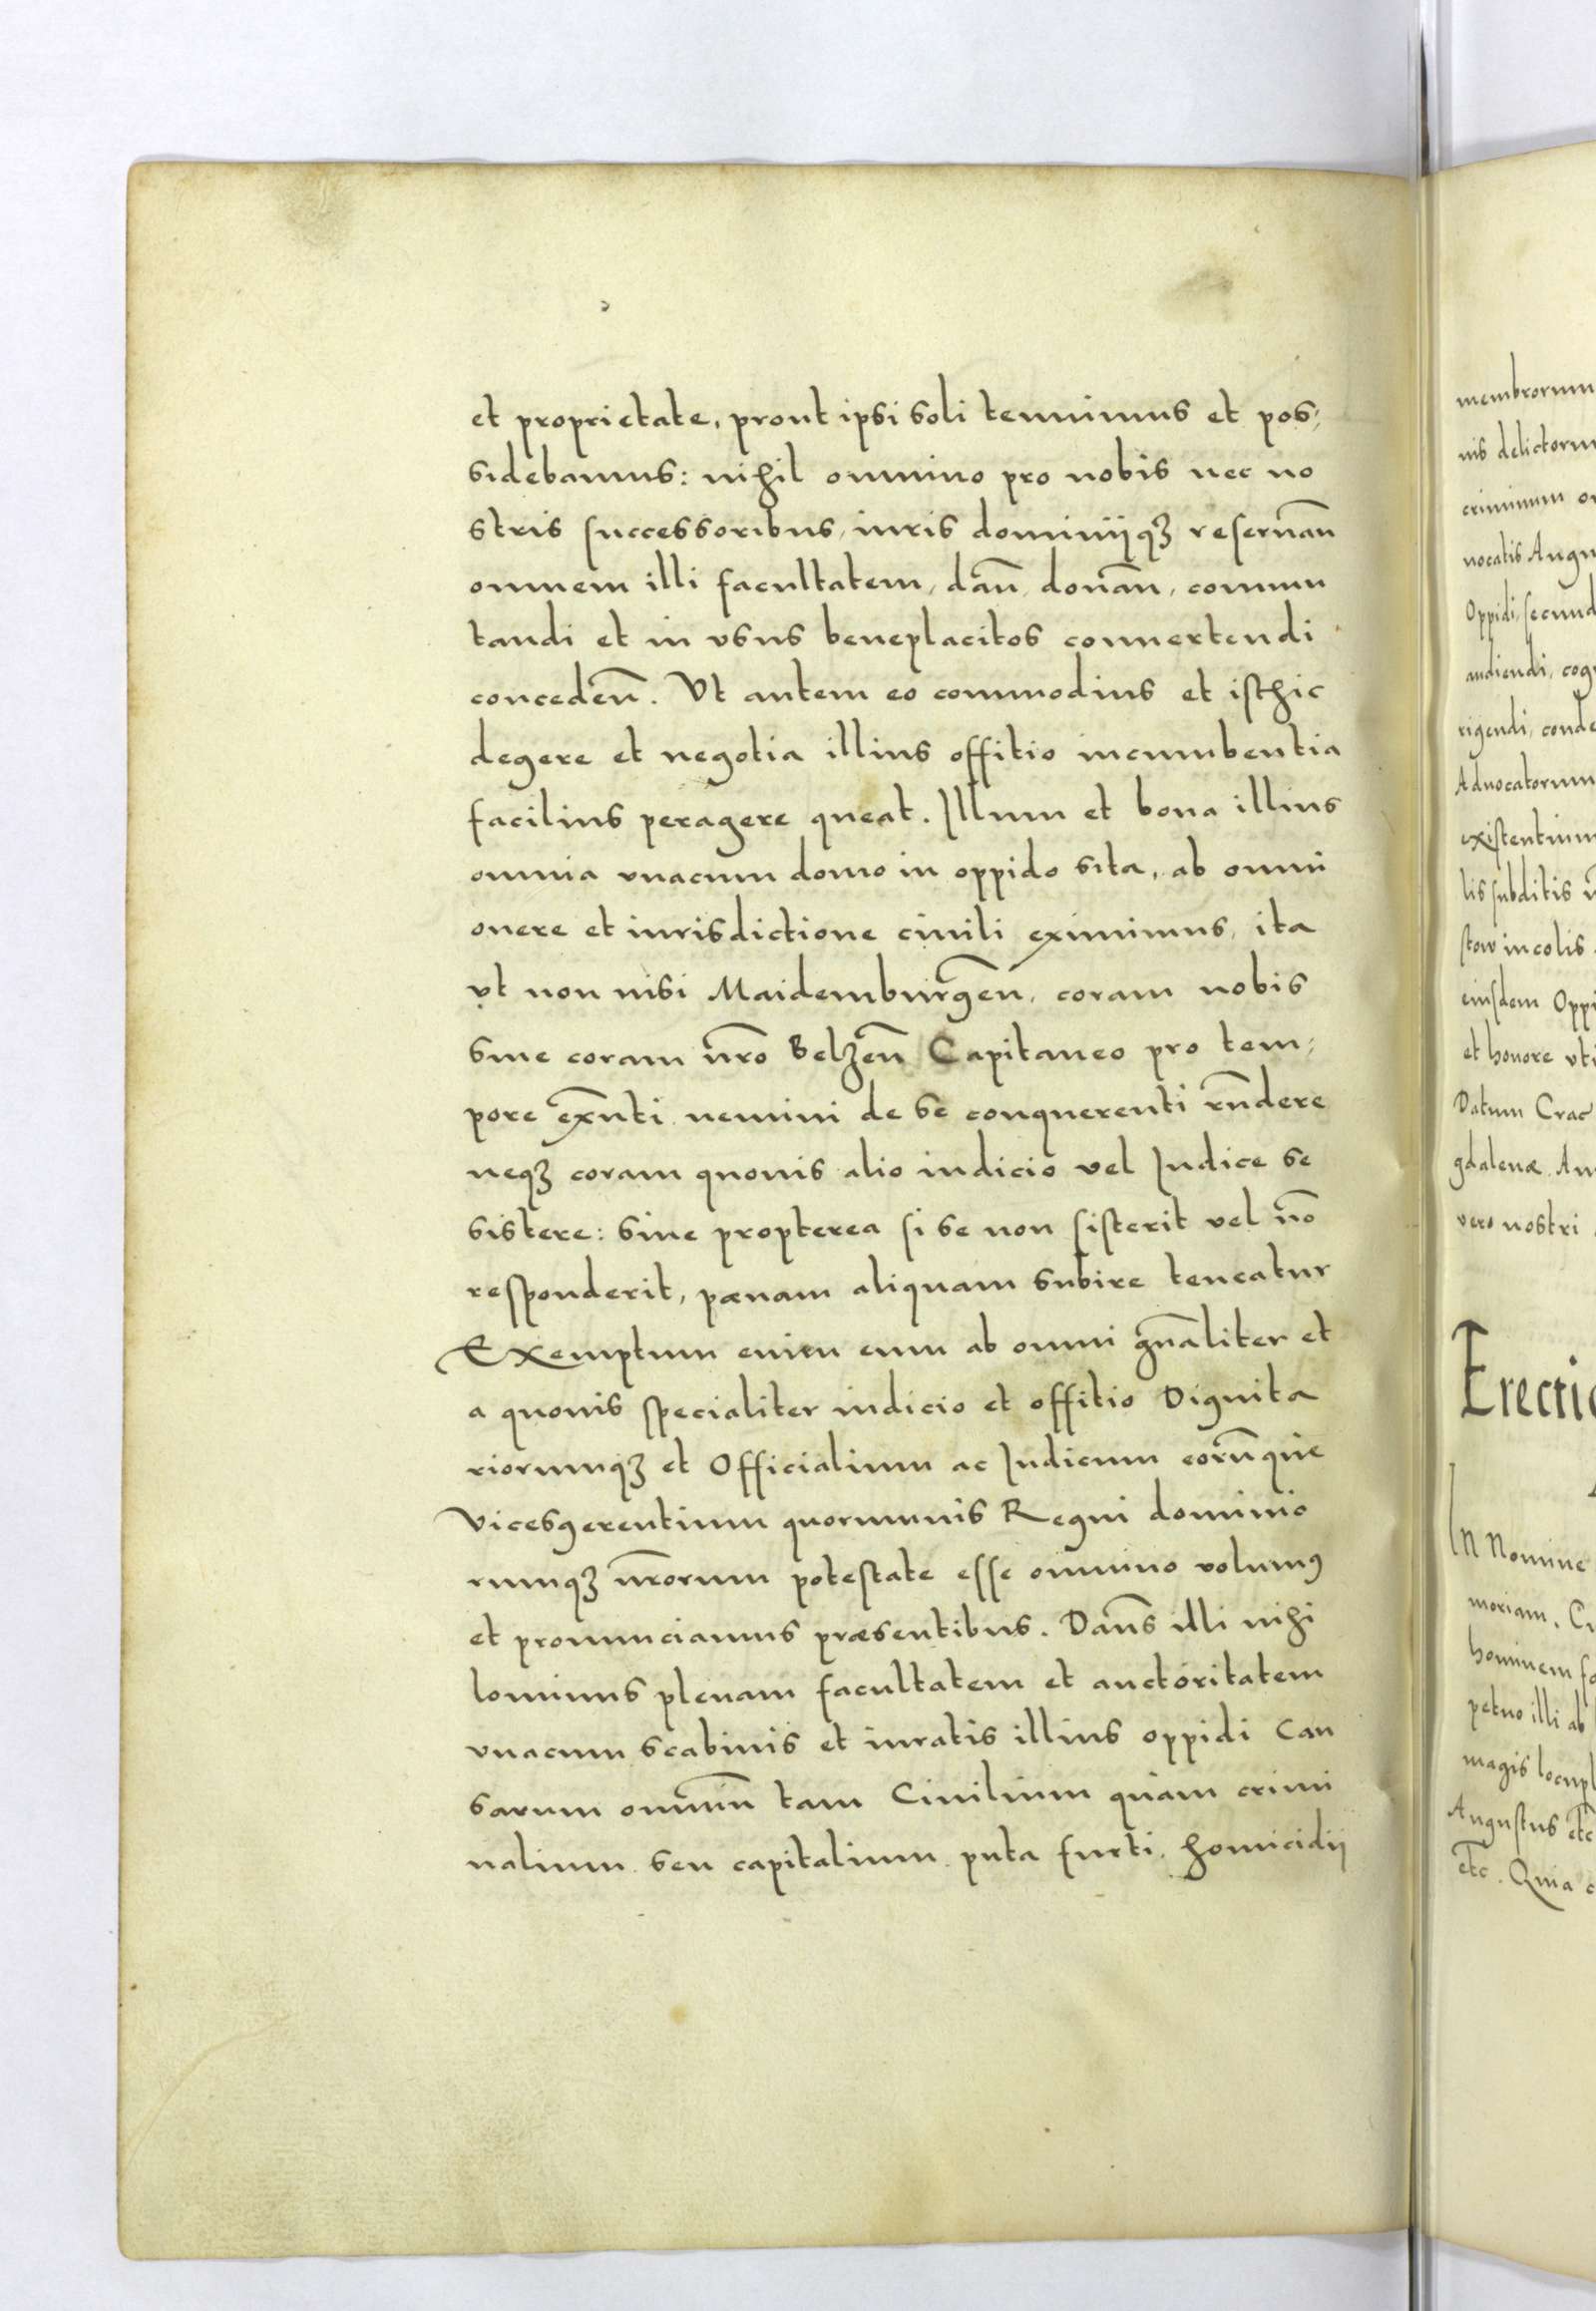 et proprietate, prout ipsi soli tenuimus et pos,
sidebamus: nihil omnino pro nobis nec no
stris successoribus, iuris dominijqꝫ reseruañ
omnem illi facultatem, dañ, donañ, commu
tandi et in vsus beneplacitos conuertendi
concedeñ. Vt autem eo commodius et isthic
degere et negotia illius offitio incumbentia
facilius peragere queat. Illum et bona illius
omnia vnacum domo in oppido sita, ab omni
onere et iurisdictione ciuili eximimus, ita
vt non nisi Maidemburgeñ, coram nobis
siue coram nr̃o Belzeñ Capitaneo pro tem,
pore exñti nemini de se conquerenti rñdere
neqꝫ coram quouis alio iudicio vel Iudice se
sistere: siue propterea si se non sisterit vel nõ
responderit, pœnam aliquam subire teneatur
Exemptum enim eum ab omni gñaliter et
a quouis specialiter iudicio et offitio Dignita
riorumqꝫ et Officialium ac Iudicum eorũque
Vicesgerentium quorumuis Regni dominio
rumqꝫ nr̃orum potestate esse omnino volumꝰ
et pronunciamus præsentibus. Dañs illi nihi
lominus plenam facultatem et auctoritatem
vnacum scabinis et iuratis illius oppidi Cau
sarum omniũ tam Ciuilium quàm crimi
nalium seu capitalium puta furti, homicidij
membrorum
nis delictorum
criminum
uocatis
Oppidi, secund
audiendi, cog
rigendi, conde
Aduocatorum
existentium
lis subditis
stow incolis
eiusdem Oppi
et honore vti
Datum Crac
gdalenæ An
vero nostri
Erectio
In Nomine
moriam. C
hominem
petuo illi ab
magis locupl
Augustus etc̃
etc̃. Quia